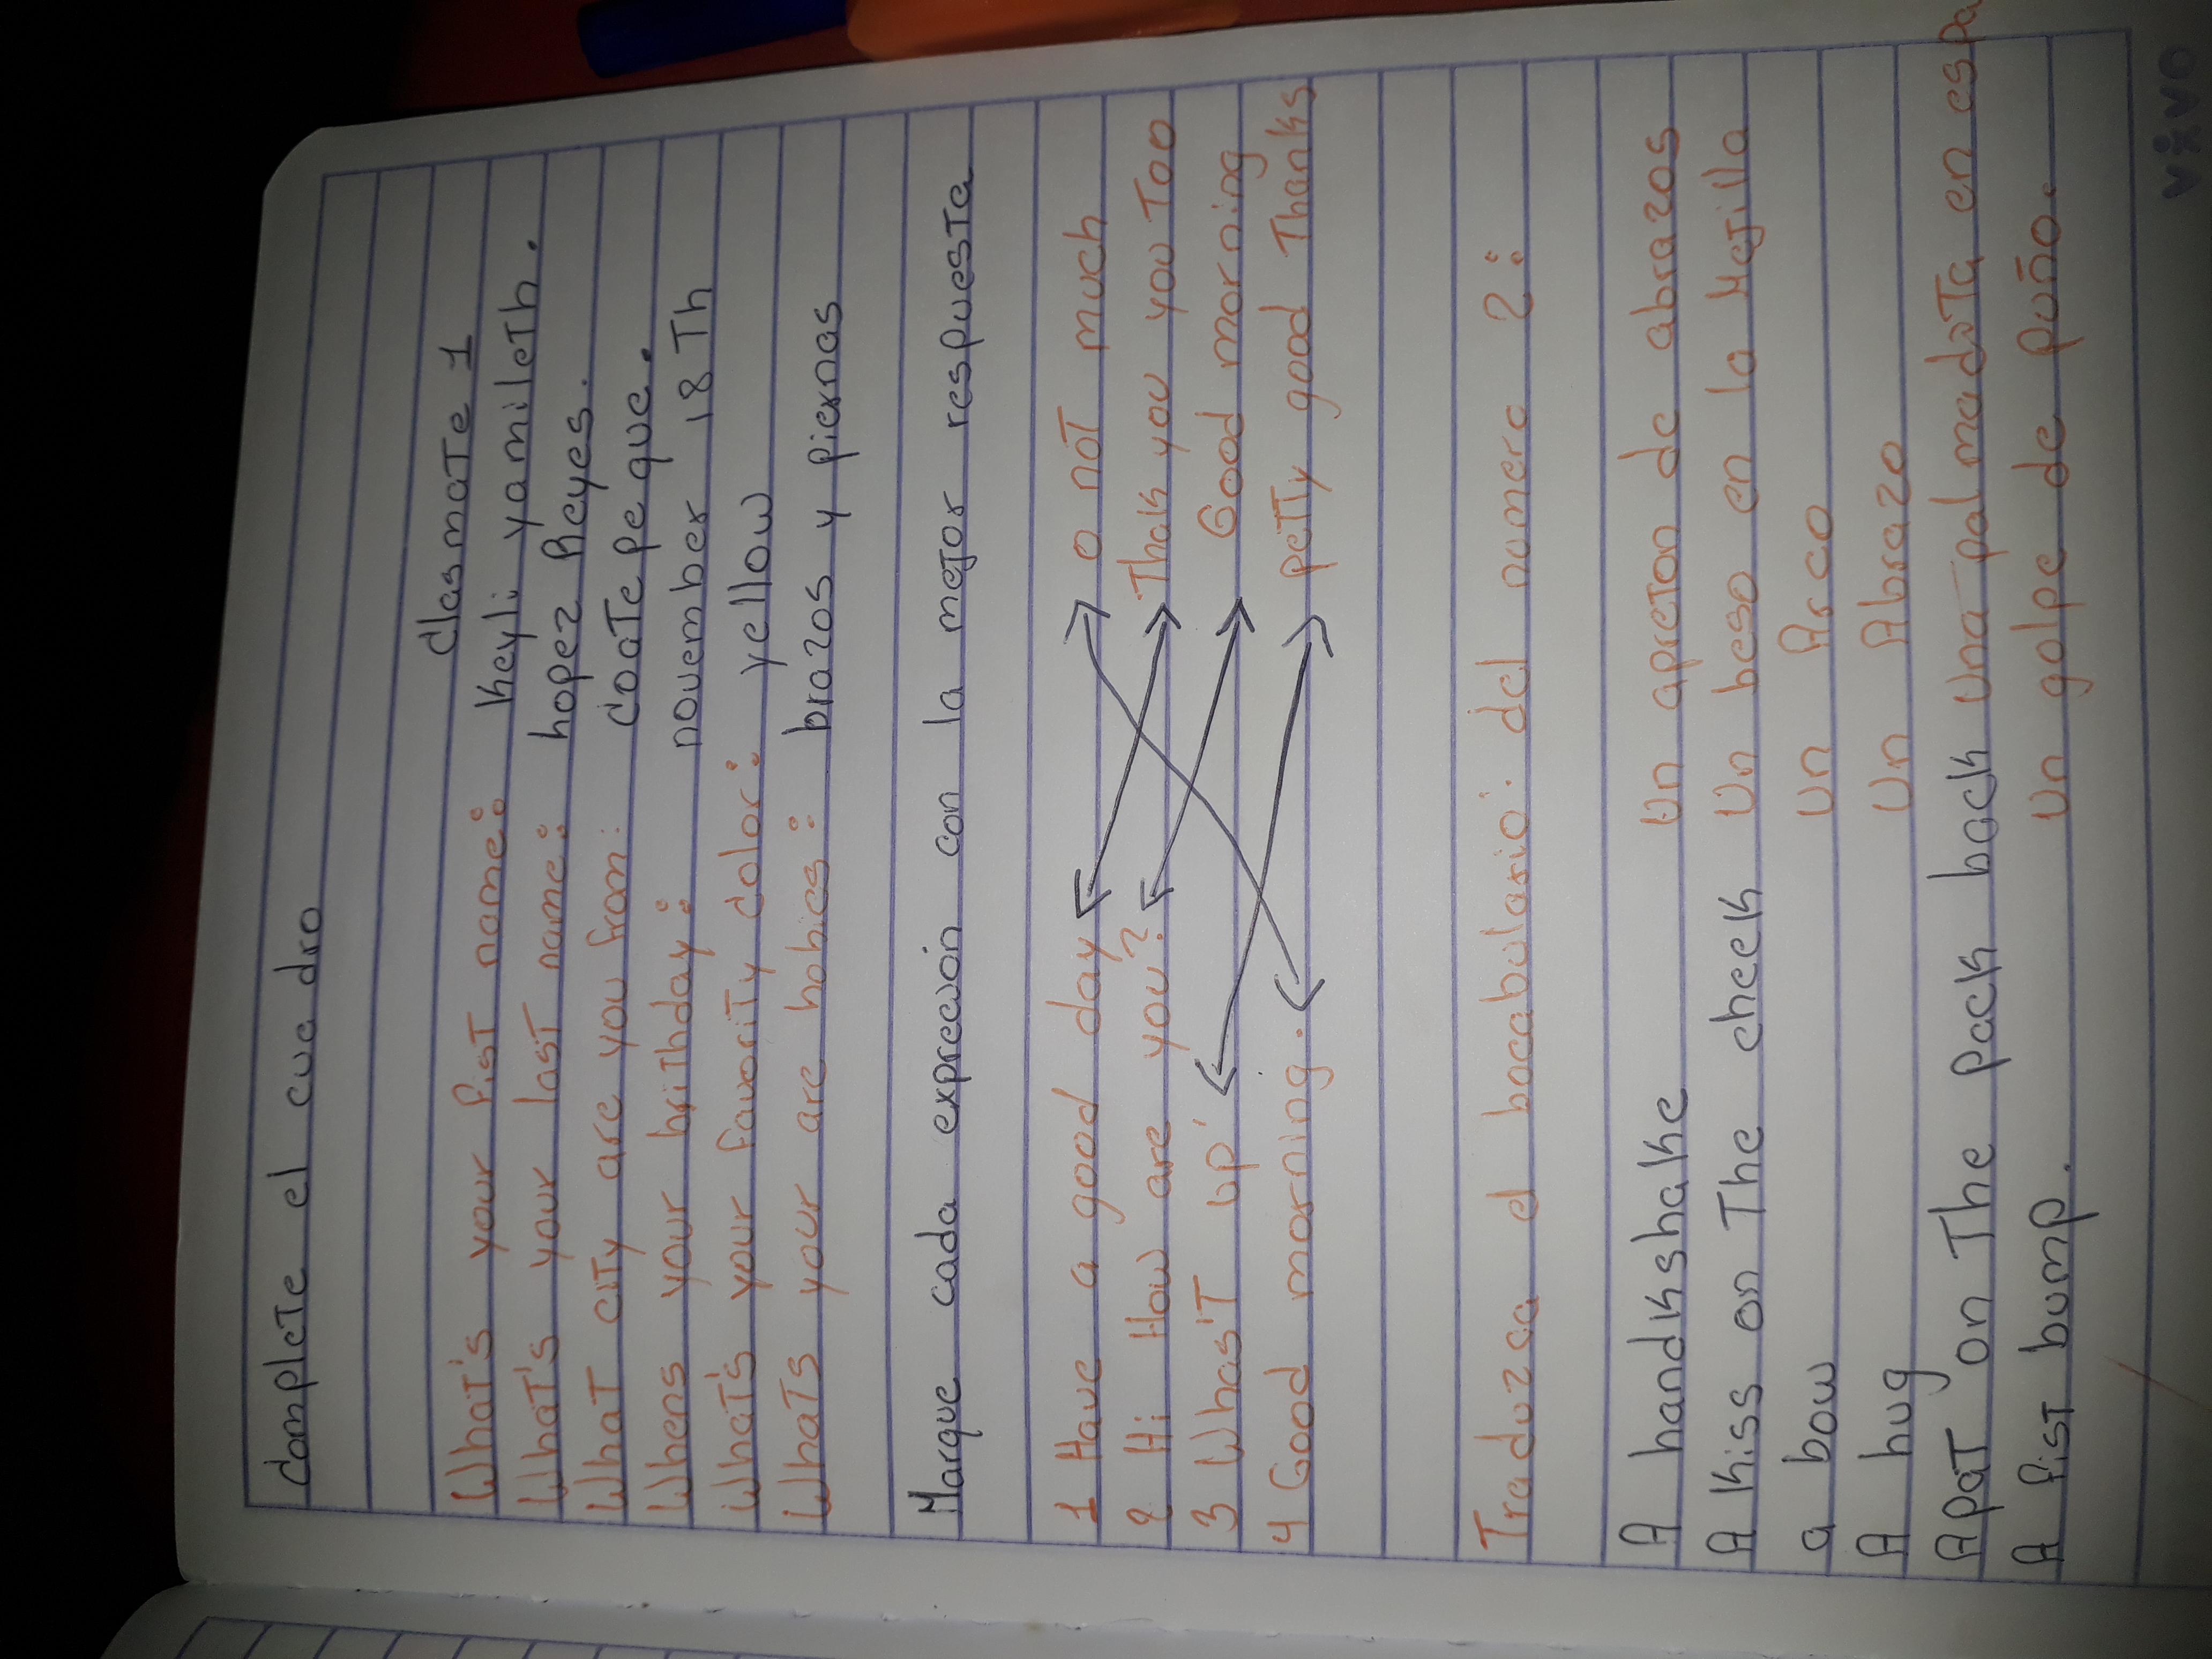 complete el cuadro
clasmate 1
What's your fist name: Keyli yamileth.
What's your last name: hopez Reyes.
What city are you from: coatepeque.
Whens your brithday: november 18 Th
What's your favority color: yellow
Whats your are hobies: brazos y piernas
Marque cada exprecion con la mejor respuesta
1 Have a good day o not much
2 Hi How are you? Thak you you Too
3 Whas'T up' Good morning
4 Good morning. peTTy good Thanks
Traduzca el bocabulario: del numero 2:
A handkshake Un apreton de abrazos
A kiss on The cheek Un beso en la Mejilla
a bow Un Arco
A hug Un Abrazo
A paT on The pack back Una palmadaTa en espa
A fist bump. Un golpe de puño.
vivo